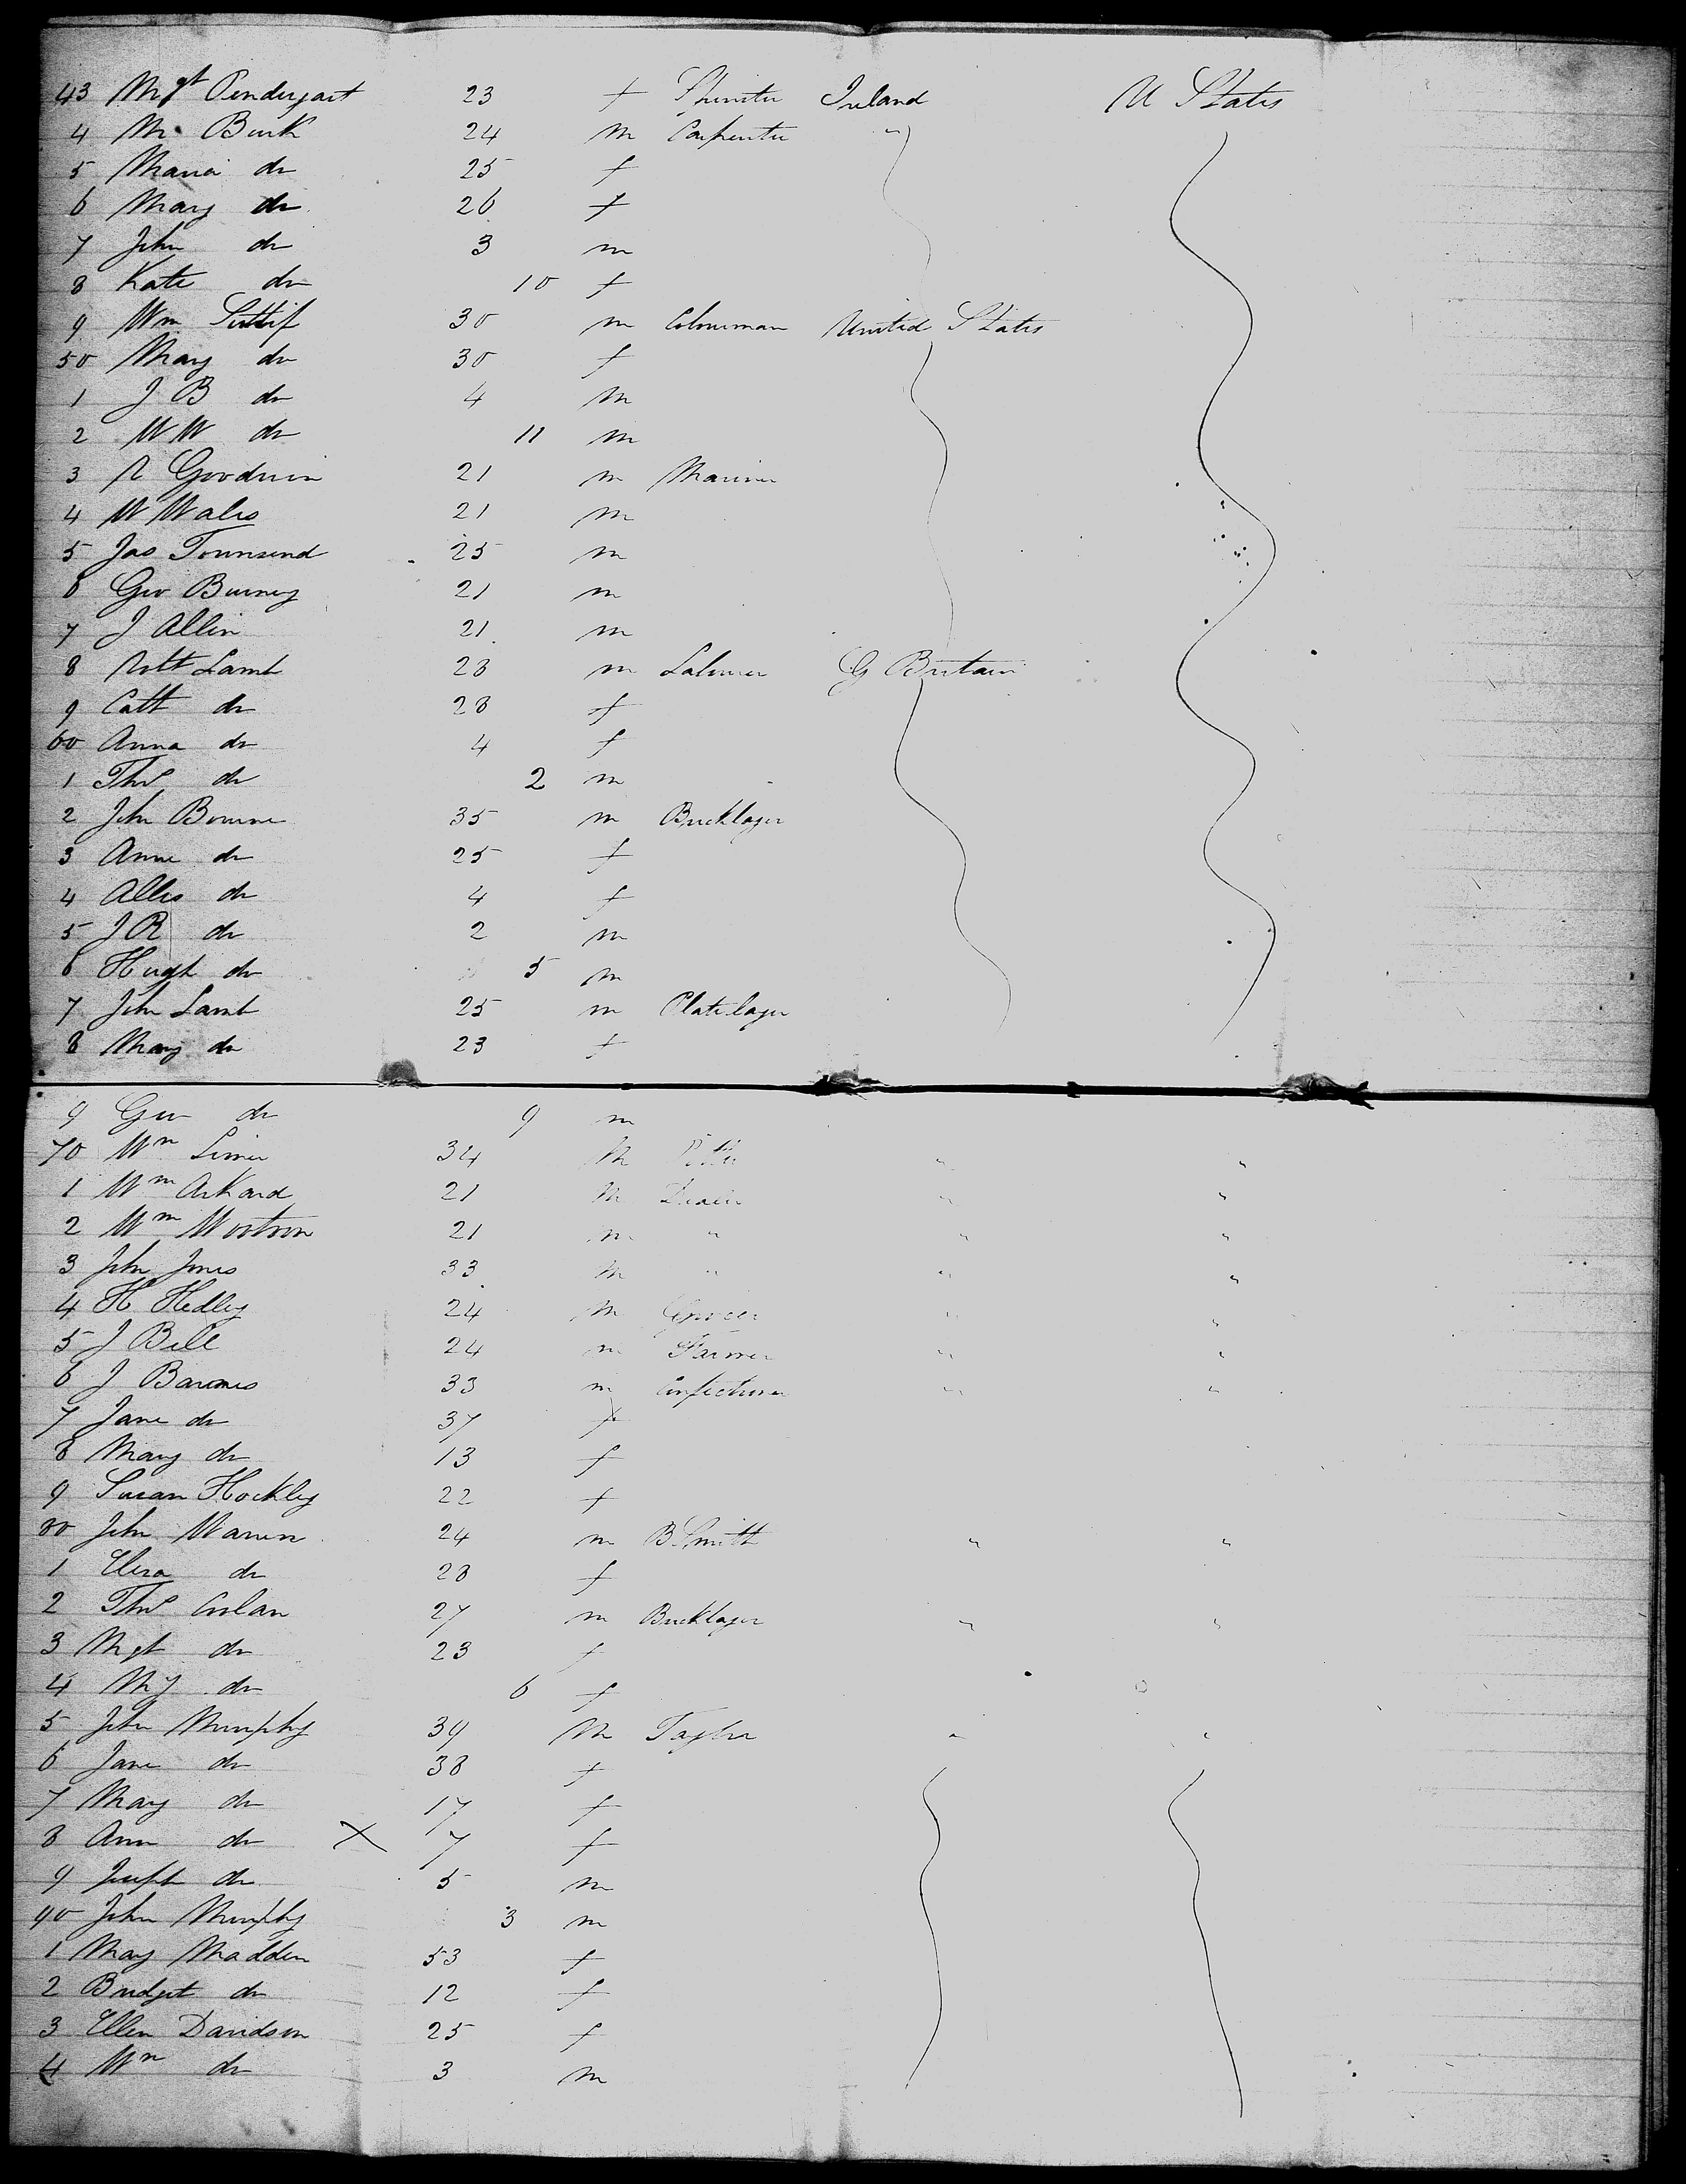 43 Mgt Pendergast 23 f Ireland U States
4 M. Burk 24 m Carpenter "
5 Maria do 25 f
6 Mary do 26 f
7 John do 3 m
8 Kate do 10 f
9 Wm 30 m United States
50 Mary do 30 f
1 J B do 4 m
2 W W do 11 m
3 R Goodwin 21 m Mariner
4 W Wales 21 m
5 Jas Townsend 25 m
6 Geo Burney 21 m
7 J Allin 21 m
8 Robt Lamb 28 m Labourer G Britain
9 Cath do 28 f
60 Anna do 4 f
1 Thos do 2 m
2 John Bourne 35 m Bricklayer
3 Anne do 25 f
4 do 4 f
5 J R do 2 m
6 Hugh do 5 m
7 John Lamb 25 m Platelayer
8 Mary do 23 f
9 Geo do 9 m
70 Wm 34 m " "
1 Wm Arkard 21 m " "
2 Wm 21 m " " "
3 John Jones 33 m " " "
4 H Hedley 24 m Grocer " "
5 J Bell 24 m Farmer " "
6 J Barnes 33 m Confectioner " "
7 Jane do 37 f
8 Mary do 13 f
9 Susan Hockley 22 f
80 John Warren 24 m B Smith " "
1 Eliza do 28 f
2 Thos 27 m Bricklayer " "
3 Mgt do 23 f
4 My do 6 f
5 John Murphy 39 m Taylor " "
6 Jane do 38 f
7 Mary do 17 f
8 Ann do X 7 f
9 Joseph do 5 m
90 John Murphy 3 m
1 Mary Madden 53 f
2 Bridget do 12 f
3 Ellen Davidson 25 f
4 Wm do 3 m